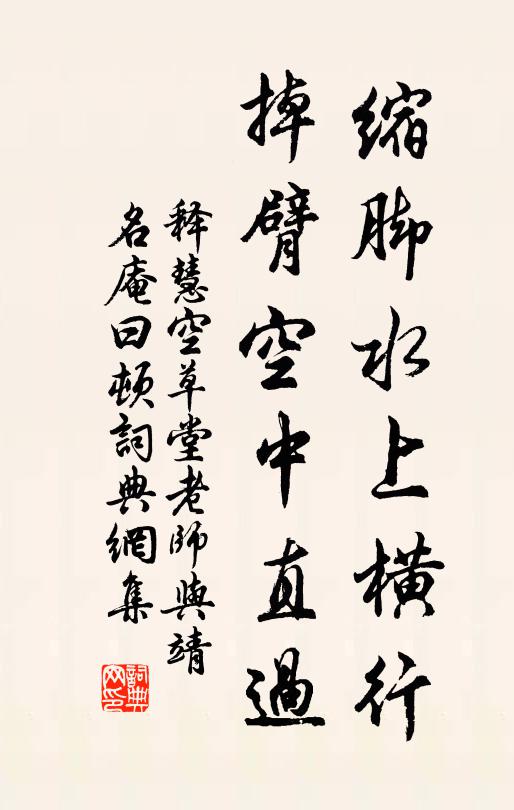 缩脚水上橫行
掉臂空中直過
释慧空草堂老師與靖
名庵曰頓詞典網集
詞典
网印